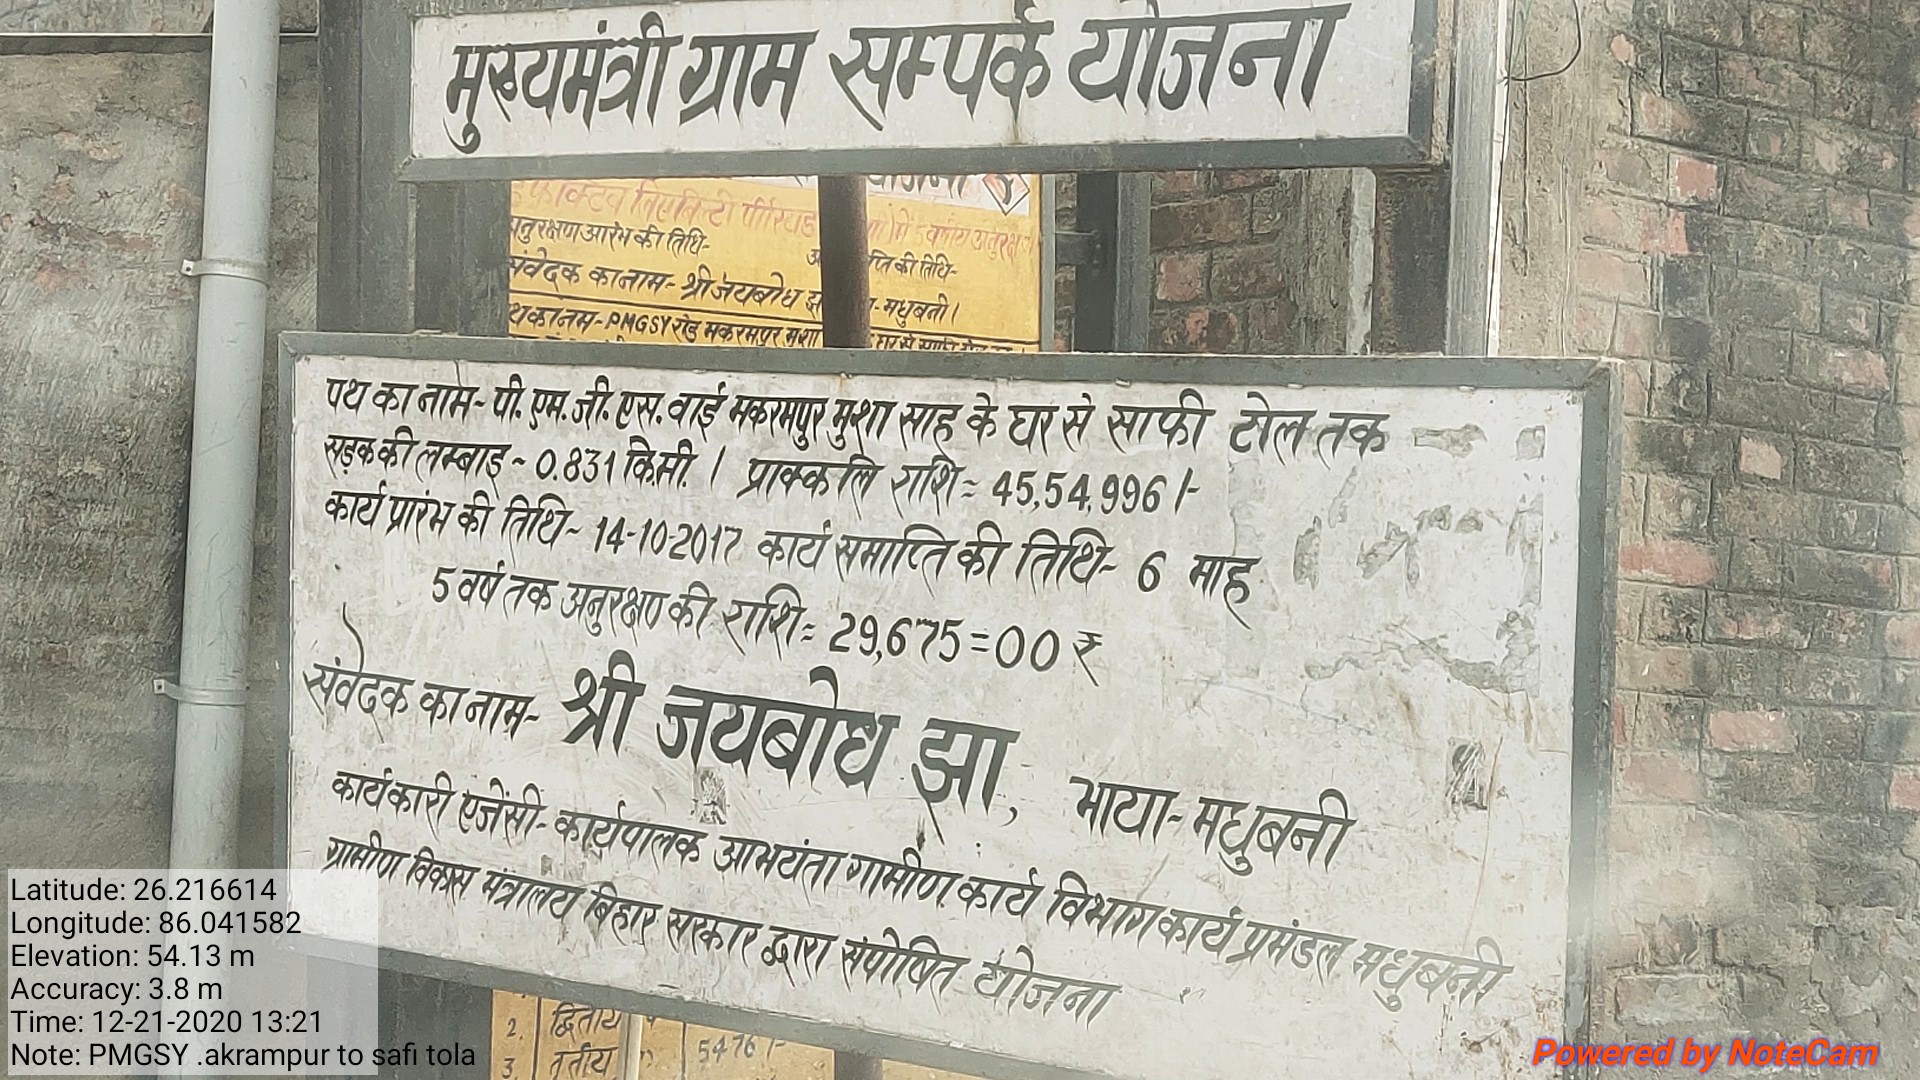 मुख्यमंत्री ग्राम सम्पर्क योजना
अनुरक्षण आरंभ की तिथि-
की तिथि-
संवेदक का नाम- श्री जयबोध झा - मधुबनी।
नाम- PMGSY रोड मकरमपुर मुशा
पथ का नाम- पी. एम. जी. एस. वाई मकरमपुर मुशा साह के घर से साफी टोल तक
सड़क की लम्बाइ - 0.831 कि.मी. । प्राक्कलि राशि = 45,54,996/-
कार्य प्रारंभ की तिथि- 14-10-2017 कार्य समाप्ति की तिथि- 6 माह
5 वर्ष तक अनुरक्षण की राशि = 29,675=00 ₹
संवेदक का नाम- श्री जयबोध झा, भाया- मधुबनी
कार्यकारी एजेंसी- कार्यपालक आभयंता गामीण कार्य विभाग कार्य प्रमंडल मधुबनी
ग्रामीण विकास मंत्रालय बिहार सरकार द्वारा संपोषित योजना
2. द्वितीय
3. तृतीय 5476/-
Latitude: 26.216614
Longitude: 86.041582
Elevation: 54.13 m
Accuracy: 3.8 m
Time: 12-21-2020 13:21
Note: PMGSY .akrampur to safi tola
Powered by NoteCam